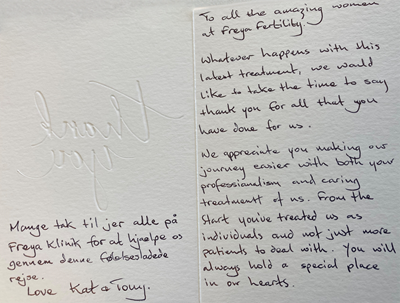 thank
you
Mange tak til jer alle på
Freya Klink for at hjaelpe os
gennem denne følelsesladede
rejse.
Love Kat & Tony.
To all the amazing women
at Freya Fertility.
Whatever happens with this
latest treatment, we would
like to take the time to say
thank you for all that you
have done for us.
We appreciate you making our
journey easier with both your
professionalism and caring
treatment of us. From the
start you've treated us as
individuals and not just more
patients to deal with. You will
always hold a special place
in our hearts.